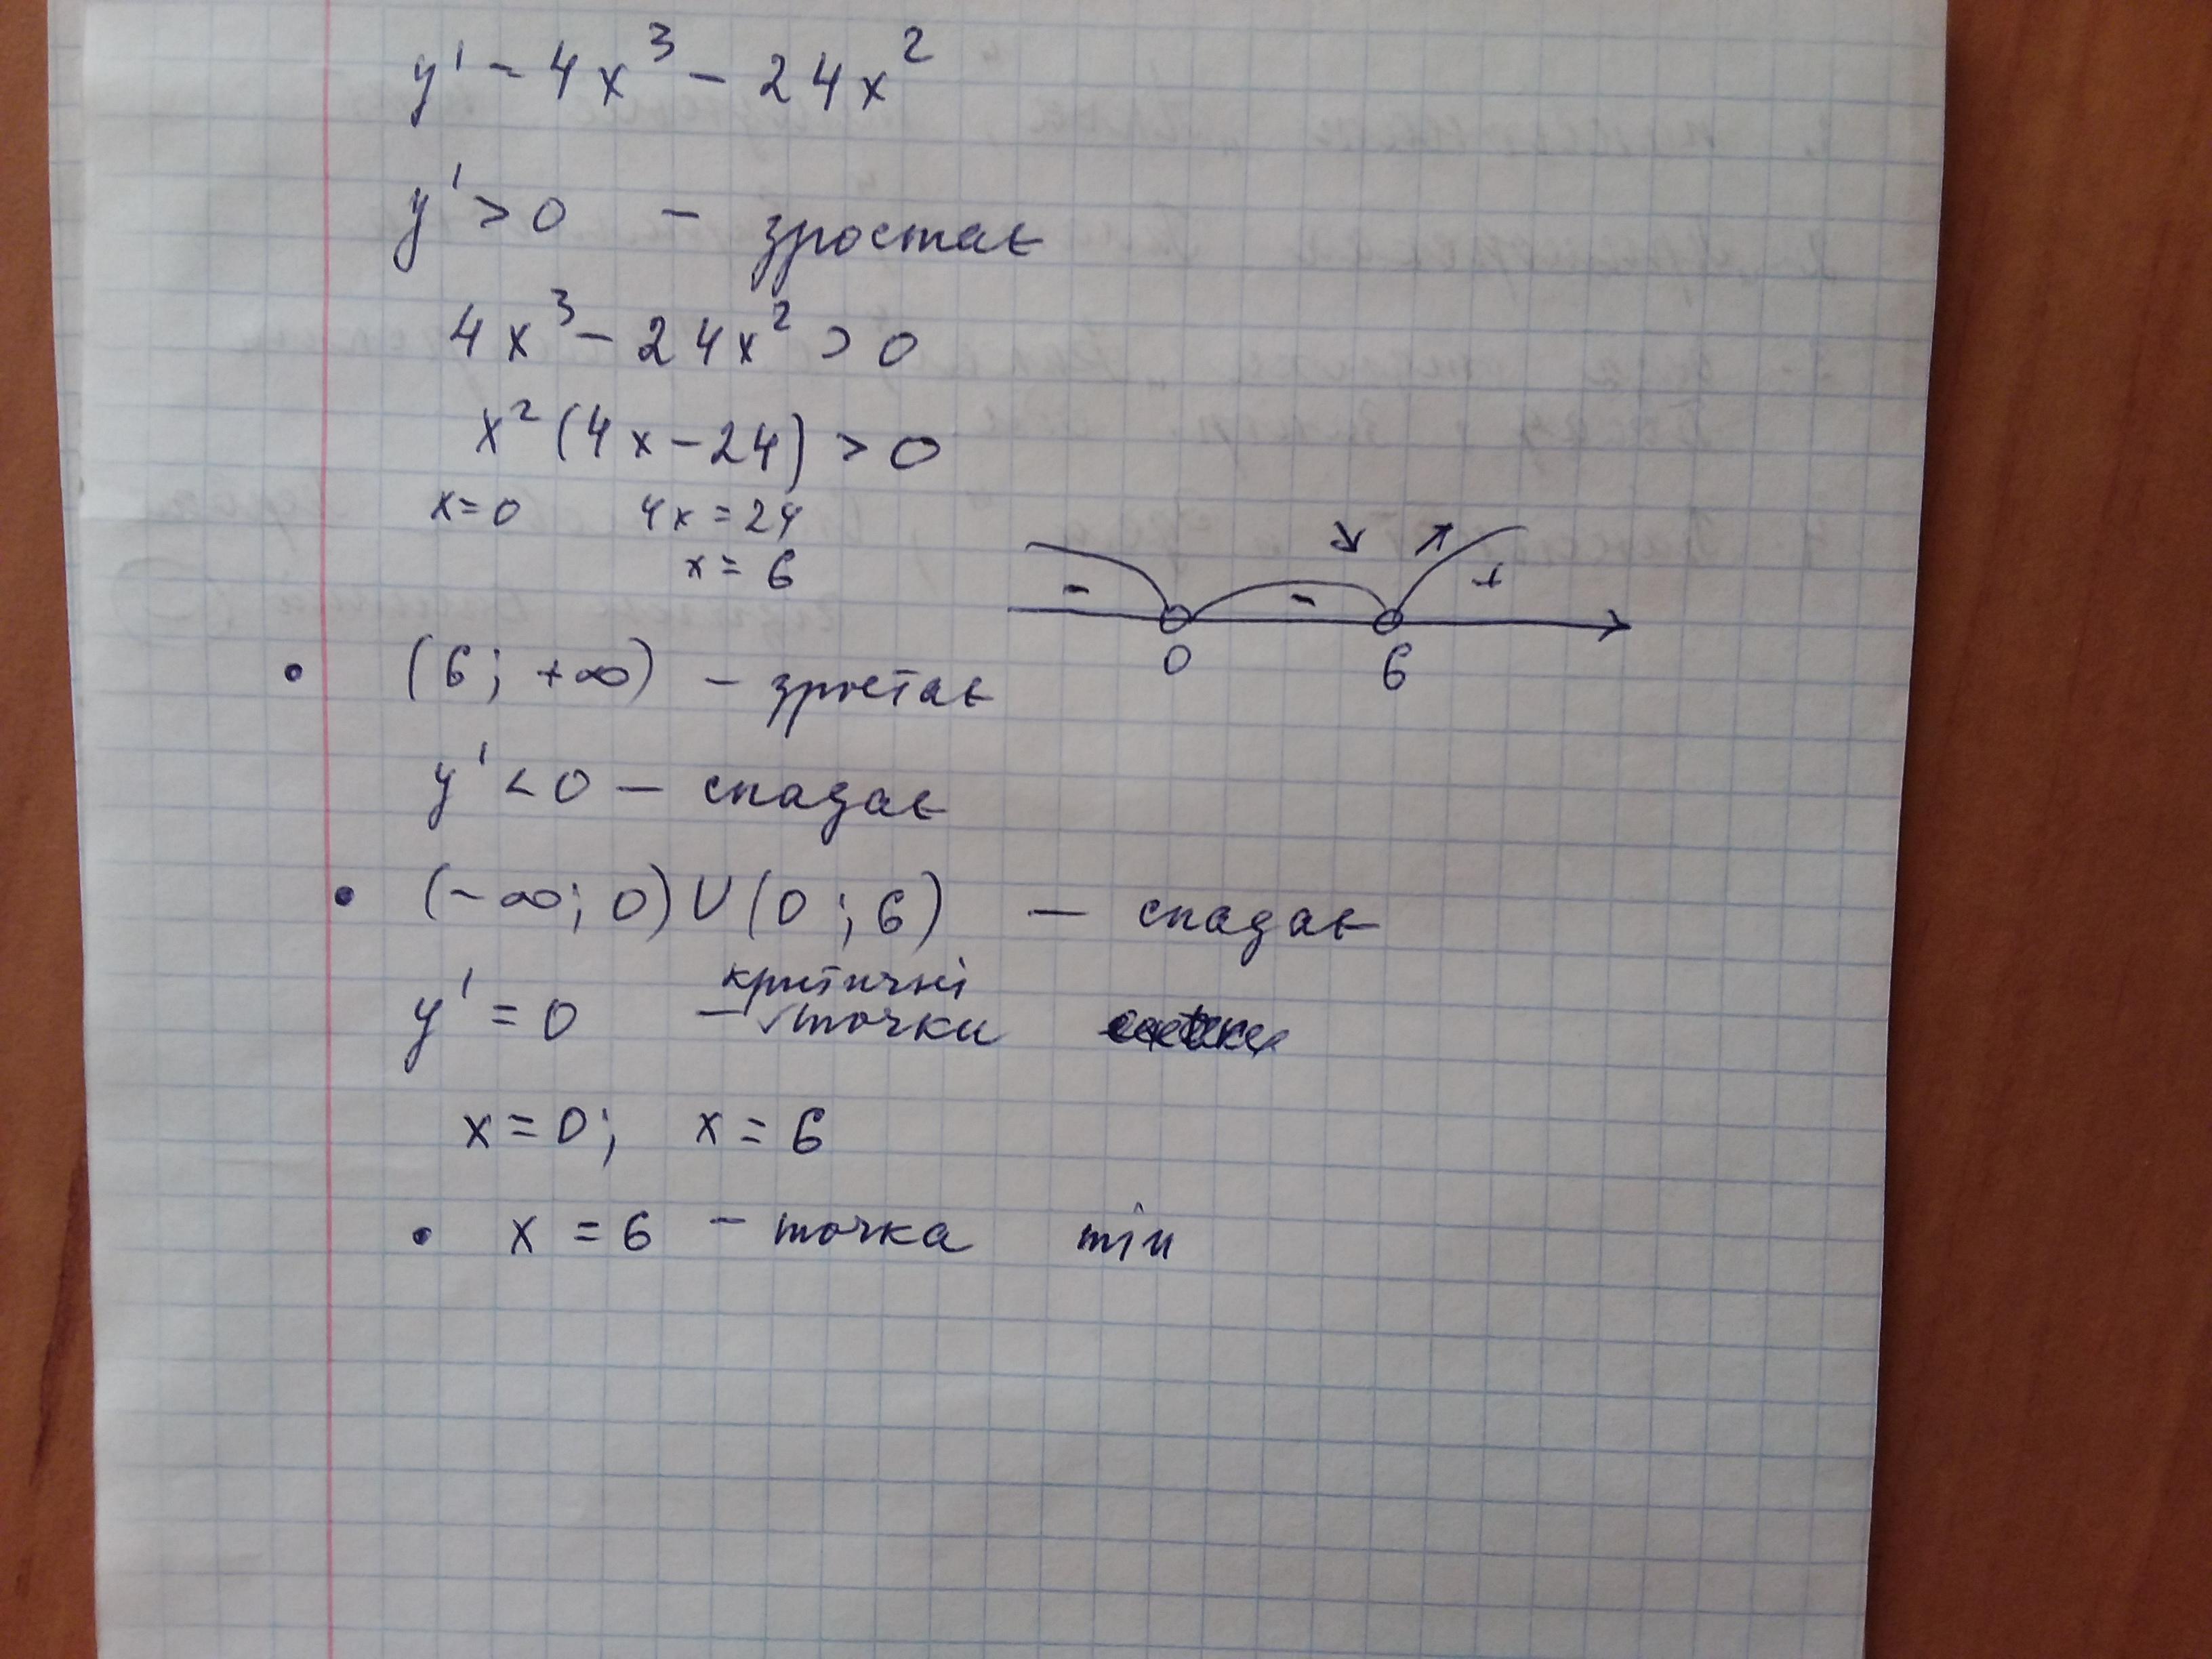 y' = 4x³ - 24x²
y' > 0 - зростає
4x³ - 24x² > 0
x² (4x - 24) > 0
x = 0 4x = 24
x = 6
- - +
0 6
• (6; +∞) - зростає
y' < 0 - спадає
• (-∞; 0) U (0; 6) - спадає
критичні
y' = 0 - точки
x = 0; x = 6
• x = 6 - точка min